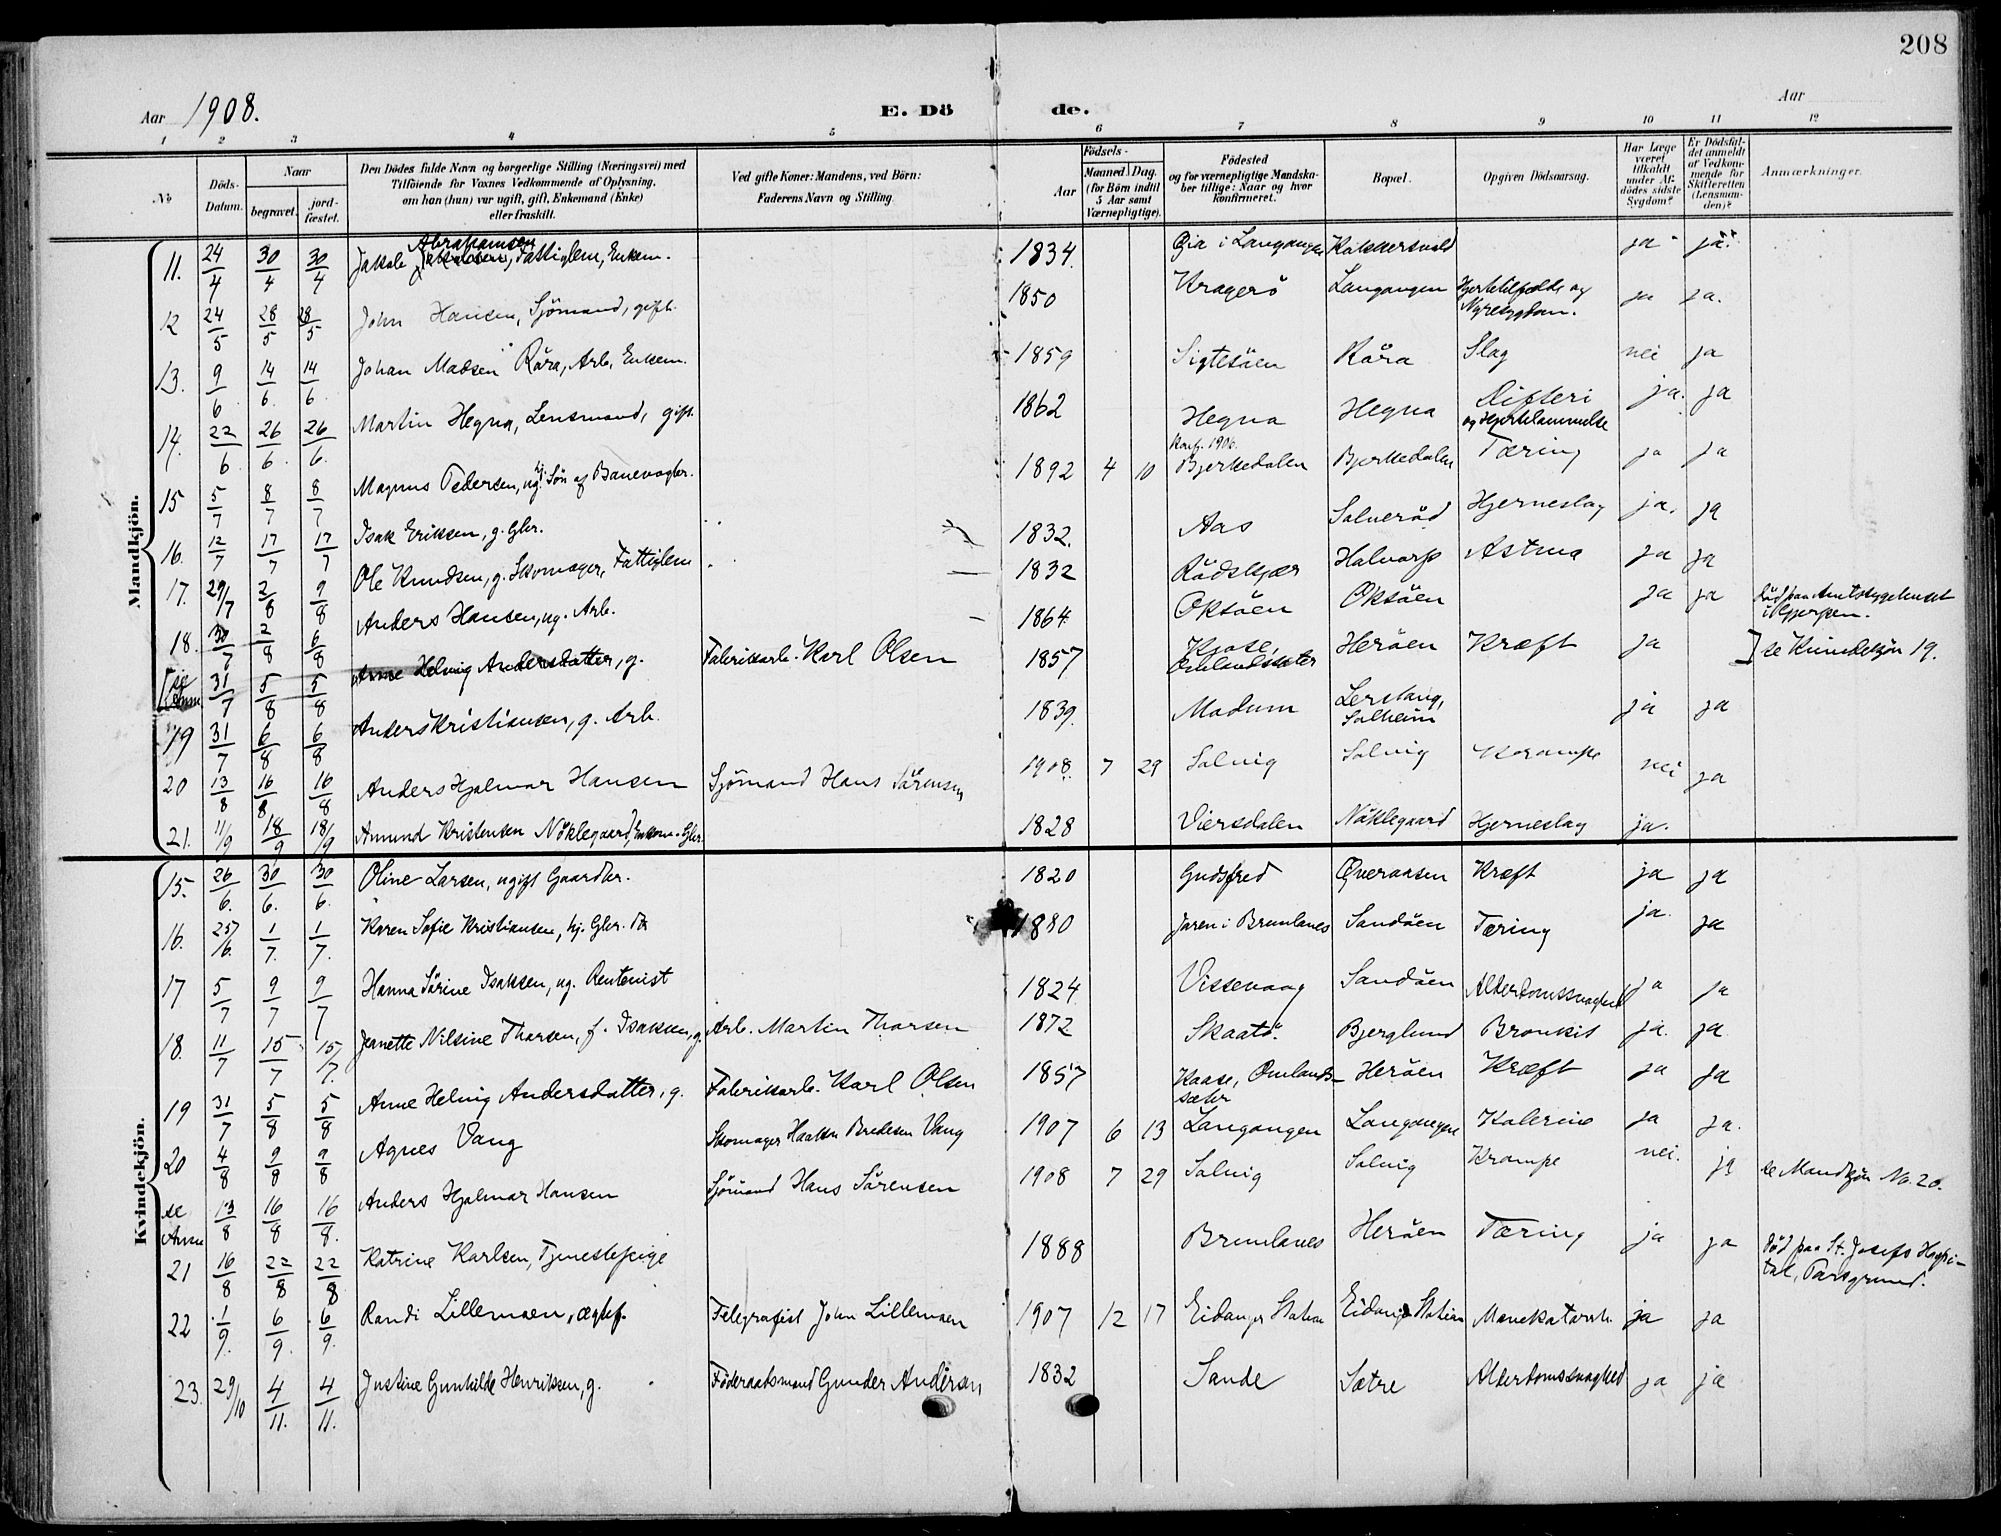 208
Aar 1908.
E. Dö de.
Aar
1 2 3 4 5 6 7 8 9 10 11 12
No
Döds-Datum.
Naar begravet. jordfæstet.
Den Dödes fulde Navn og borgerlige Stilling (Næringsvei) med Tilföiende for Voxnes Vedkommende af Oplysning, om han (hun) var ugift, gift, Enkemand (Enke) eller fraskilt.
Ved gifte Koner: Mandens, ved Börn: Faderens Navn og Stilling.
Födsels-
Aar
Maaned Dag. (for Börn indtil 5 Aar samt Værnepligtige).
Födested og for værnepligtige Mandskaber tillige: Naar og hvor konfirmeret.
Bopæl.
Opgiven Dödsaarsag.
Har Læge været tilkaldt under Afdödes sidste Sygdom?
Er Dödsfaldet anmeldt af Vedkommende for Skifteretten (Lensmanden)?
Anmærkninger.
Mandkjön.
11. 24/4 30/4 30/4 Jakob Abrahamsen, Fattiglem, Enkem. 1834. Øia i Langangen ja ja
12 24/5 28/5 28/5 John Hansen, Sjömand, gift. 1850 Kragerö Langangen Hjertetilfælde og Nyresygdom. ja ja.
13. 9/6 14/6 14/6 Johan Madsen Röra, Arb. Enkem. 1859 Sigtesöen Röra Slag nei ja
14. 22/6 26/6 26/6 Martin Hegna, Lensmand, gift. 1862 Hegna Hegna Difteri og Hjertelammelse ja. ja
15 5/7 8/7 8/7 Magnus Pedersen, ug. hj. Sön af Banevogter. 1892 4 10 Konf. 1906. Bjerkedalen Bjerkedalen Tæring ja ja
16. 12/7 17/7 17/7 Isak Eriksen, g. Gbr. 1832. Aas Solveröd Hjerneslag ja. ja
17. 29/7 2/8 9/8 Ole Knudsen, g. Skomager, Fattiglem 1832 Rödskjær Halvarp Astma ja ja
18. 30/7 2/8 6/8 Anders Hansen, ug. Arb. 1864 Oksöen Oksöen ja ja Död paa Amtssygehuset i Gjerpen.
[se Anm 31/7 5/8 5/8 Anne Helvig Andersdatter, g. Fabrikarb. Karl Olsen 1857 Kjose, Omlandsseter Heröen Kræft ja ] se Kvindekjön 19.
19 31/7 6/8 6/8 Anders Kristiansen, g. Arb. 1839. Modum Lerstang, Solheim ja ja
20 13/8 16/8 16/8 Anders Hjalmar Hansen Sjömand Hans Sörensen 1908. 7 29 Solvig Solvig Krampe nei ja
21. 11/9 18/9 18/9 Amund Kristensen Nöklegaard, Enkem. Gbr. 1828 Viersdalen Nöklegaard Hjerneslag ja.
Kvindekjön.
15. 26/6. 30/6. 30/6. Oline Larsen, ugift Gaardbr. 1820 Gudsfred Øveraasen Kræft ja ja
16. 25/6. 1/7. 1/7. Karen Sofie Kristiansen, hj. Gbr. Dtr 1880 Jaren i Brunlanes Sandöen Tæring ja. ja
17 5/7 9/7 9/7 Hanna Sörine Isaksen, ug. Rentenist 1824 Vissevaag Sandöen Alderdomssvaghed ja ja
18. 11/7 15/7 15/7. Jeanette Nilsine Thorsen, f. Isaksen, g. Arb. Martin Thorsen 1872 Skaatö. Bjerglund Bronkit ja. ja
19 31/7 5/8 5/8 Anne Helvig Andersdatter, g. Fabrikarb. Karl Olsen 1857 Kaase, Omlands-sæter Heröen Kræft ja ja
20 4/8 9/8 9/8 Agnes Vang Skomager Haakon Bredesen Vang 1907 6 13 Langangen Langangen Kolerine ja ja.
se Anm 13/8 16/8 16/8. Anders Hjalmar Hansen Sjömand Hans Sörensen 1908 7 29 Solvig Solvig Krampe nei. ja se Mandkjön No. 20.
21 16/8 22/8 22/8 Katrine Karlsen, Tjenestepige 1888 Brunlanes Heröen Tæring ja ja Död paa St. Josefs Hospital, Porsgrund.
22 1/9. 6/9. 6/9. Randi Lillemoen, ægtef. Telegrafist John Lillemoen 1907 12 17 Eidanger Station Eidanger Station Mavekatarrh ja ja
23. 29/10 4/11. 4/11. Justine Gunhilde Henriksen, g. Föderaadsmand Gunder Andersen 1832 Sande Sætre Alderdomssvaghed ja ja